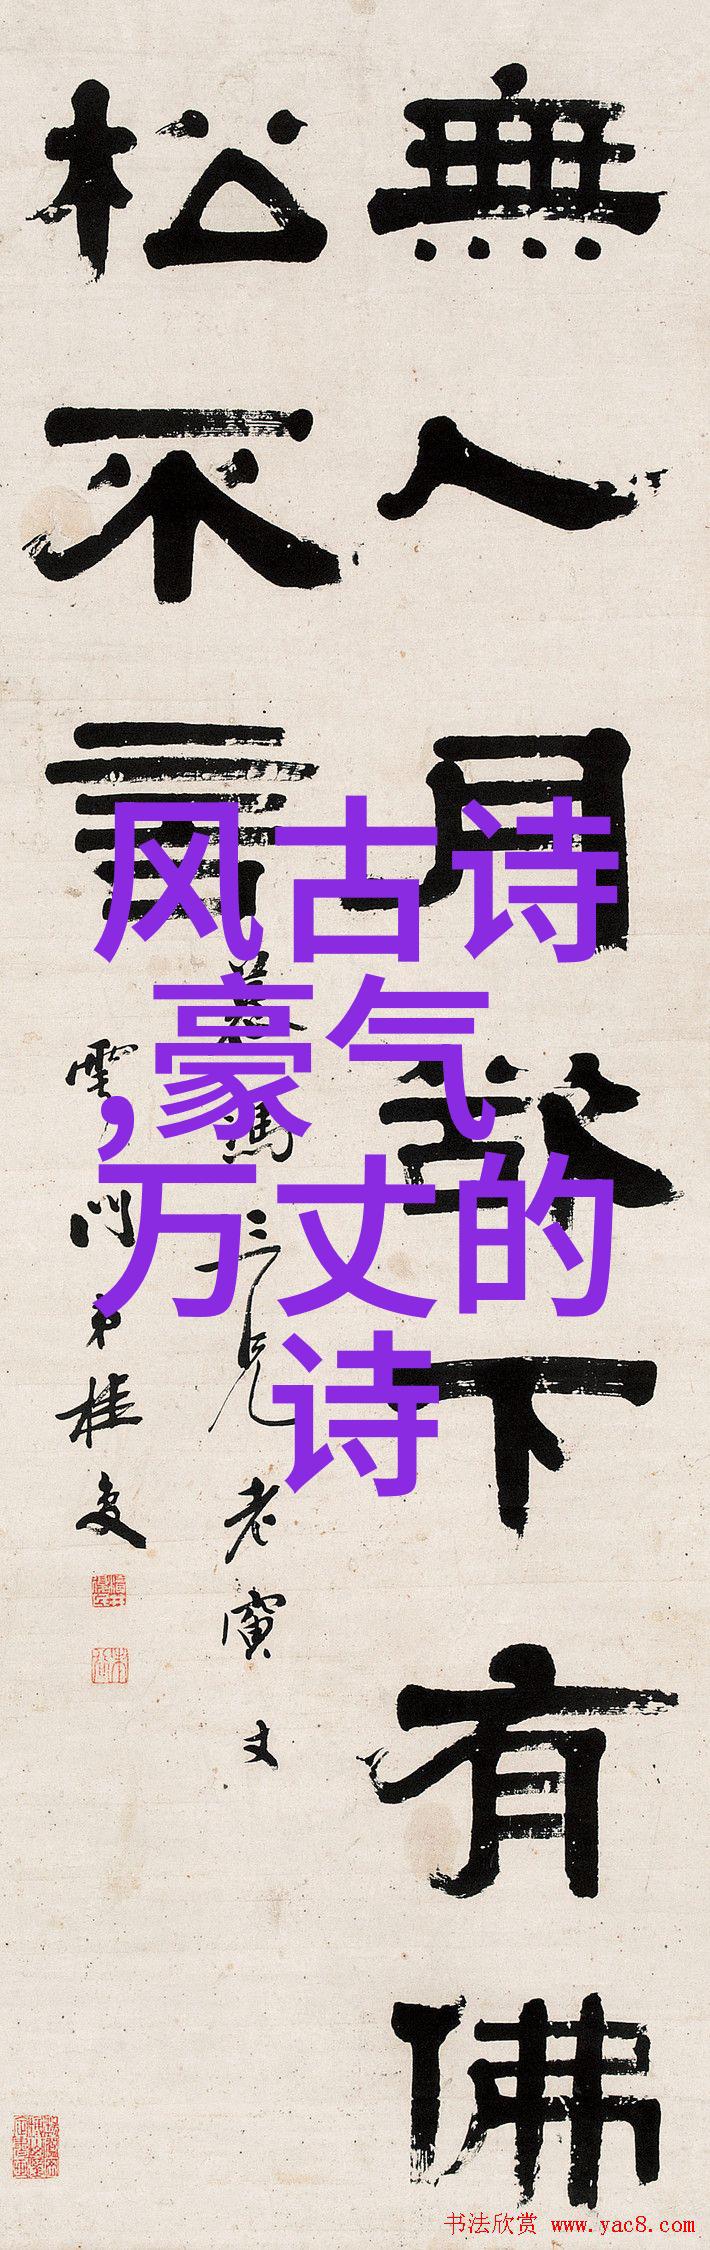 無人月欲下有佛
松不言
三兄老寅丈
雲門弟桂
风古诗
,豪气
万丈的
诗
书法欣赏 www.yac8.com